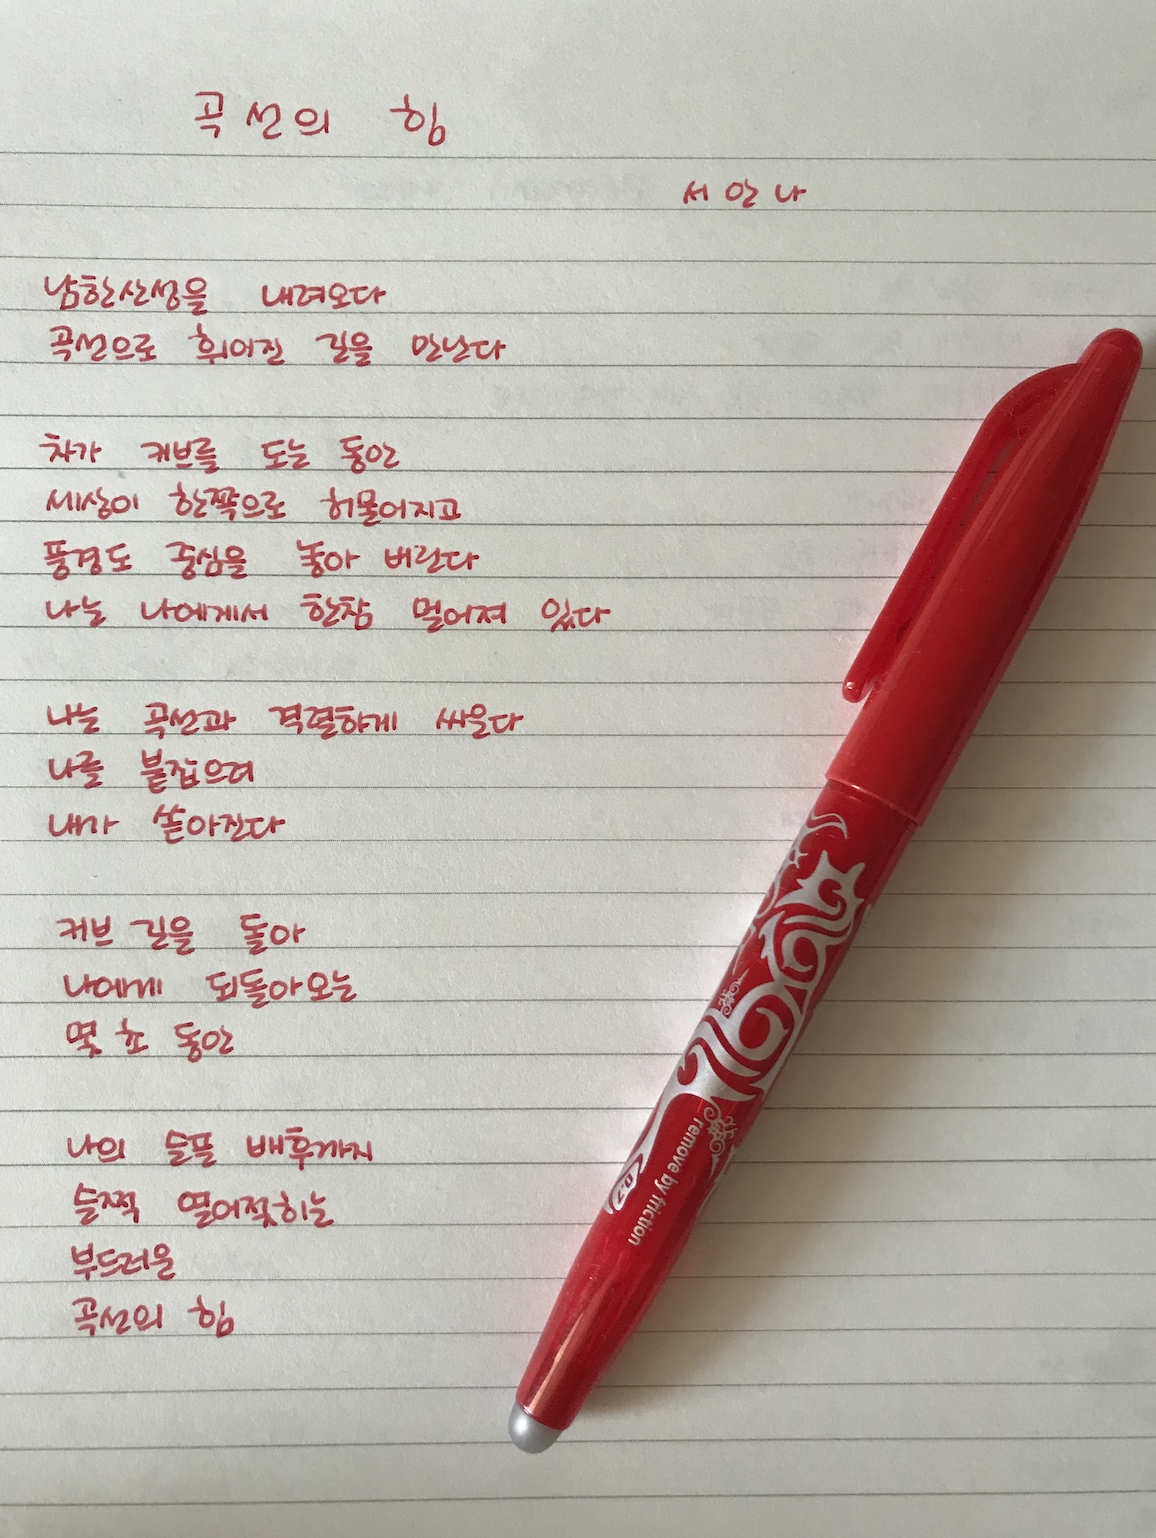 곡선의 힘
서안나
남한산성을 내려오다
곡선으로 휘어진 길을 만난다
차가 커브를 도는 동안
세상이 한쪽으로 허물어지고
풍경도 중심을 놓아 버린다
나는 나에게서 한참 멀어져 있다
나는 곡선과 격렬하게 싸운다
나를 붙잡으려
내가 쏟아진다
커브 길을 돌아
나에게 되돌아오는
몇 초 동안
나의 슬픔 배후까지
슬쩍 열어젖히는
부드러운
곡선의 힘
remove by friction
0.7